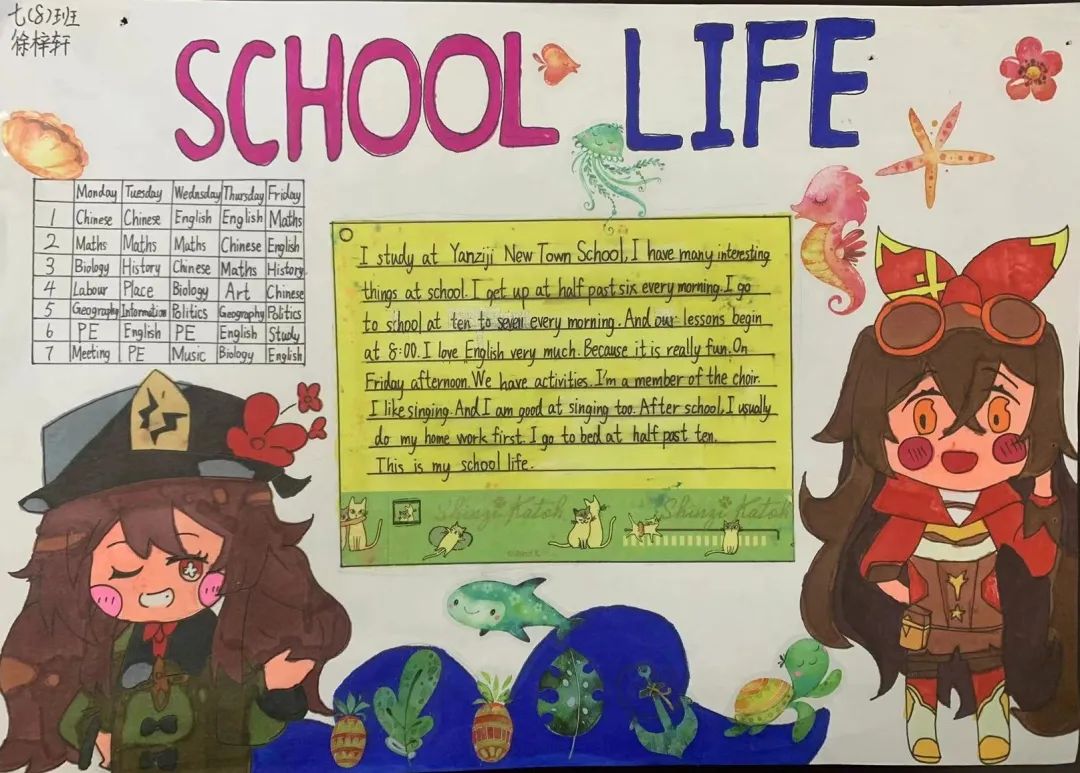 七(8)班
徐梓轩
SCHOOL LIFE
Monday Tuesday Wednsday Thursday Friday
1 Chinese Chinese English English Maths
2 Maths Maths Maths Chinese English
3 Biology History Chinese Maths History
4 Labour Place Biology Art Chinese
5 Geography Information Politics Geography Politics
6 PE English PE English Study
7 Meeting PE Music Biology English
I study at Yanziji New Town School, I have many interesting
things at school. I get up at half past six every morning. I go
to school at ten to seven every morning. And our lessons begin
at 8:00. I love English very much. Because it is really fun. On
Friday afternoon. We have activities. I'm a member of the choir.
I like singing. And I am good at singing too. After school, I usually
do my home work first. I go to bed at half past ten.
This is my school life.
Shinzi Katoh Shinzi Katoh